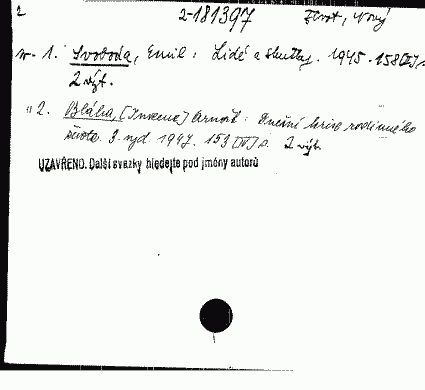 2 2-181397 Život, Nový
sv. 1. Svoboda, Emil: Lidé a skutky. 1945. 158 [II] s.
2 výt.
" 2. Bláha, [Inocenc] Arnošt: Dnešní krise rodinného
života. 3. vyd. 1947. 153 [IV] s. 2 výt.
UZAVŘENO. Další svazky hledejte pod jmény autorů